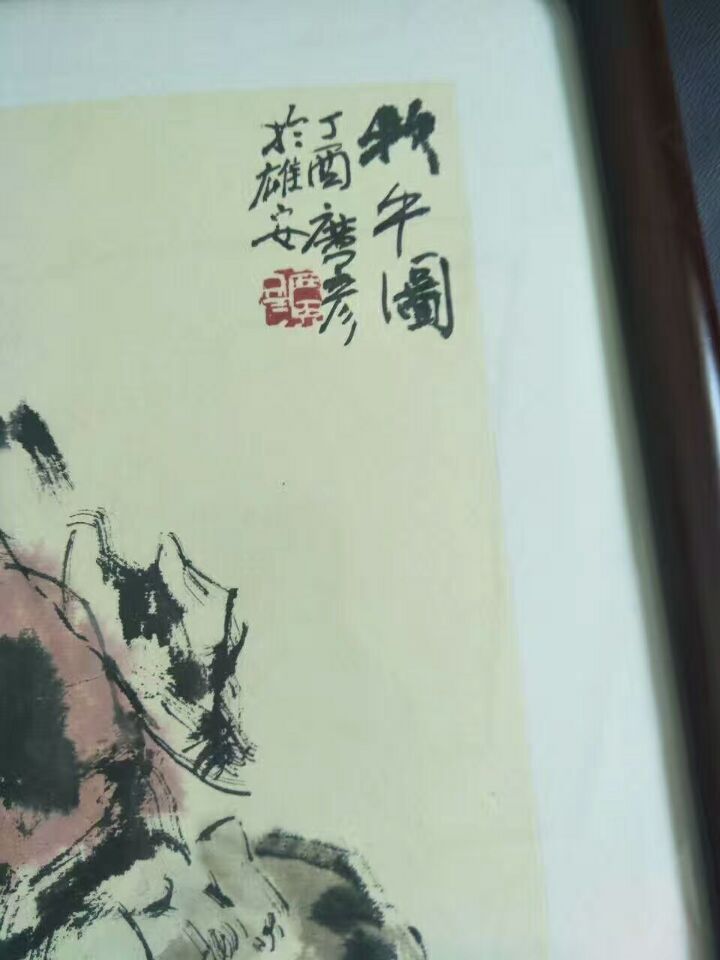 牧牛圖
丁酉廣彦
於雄安